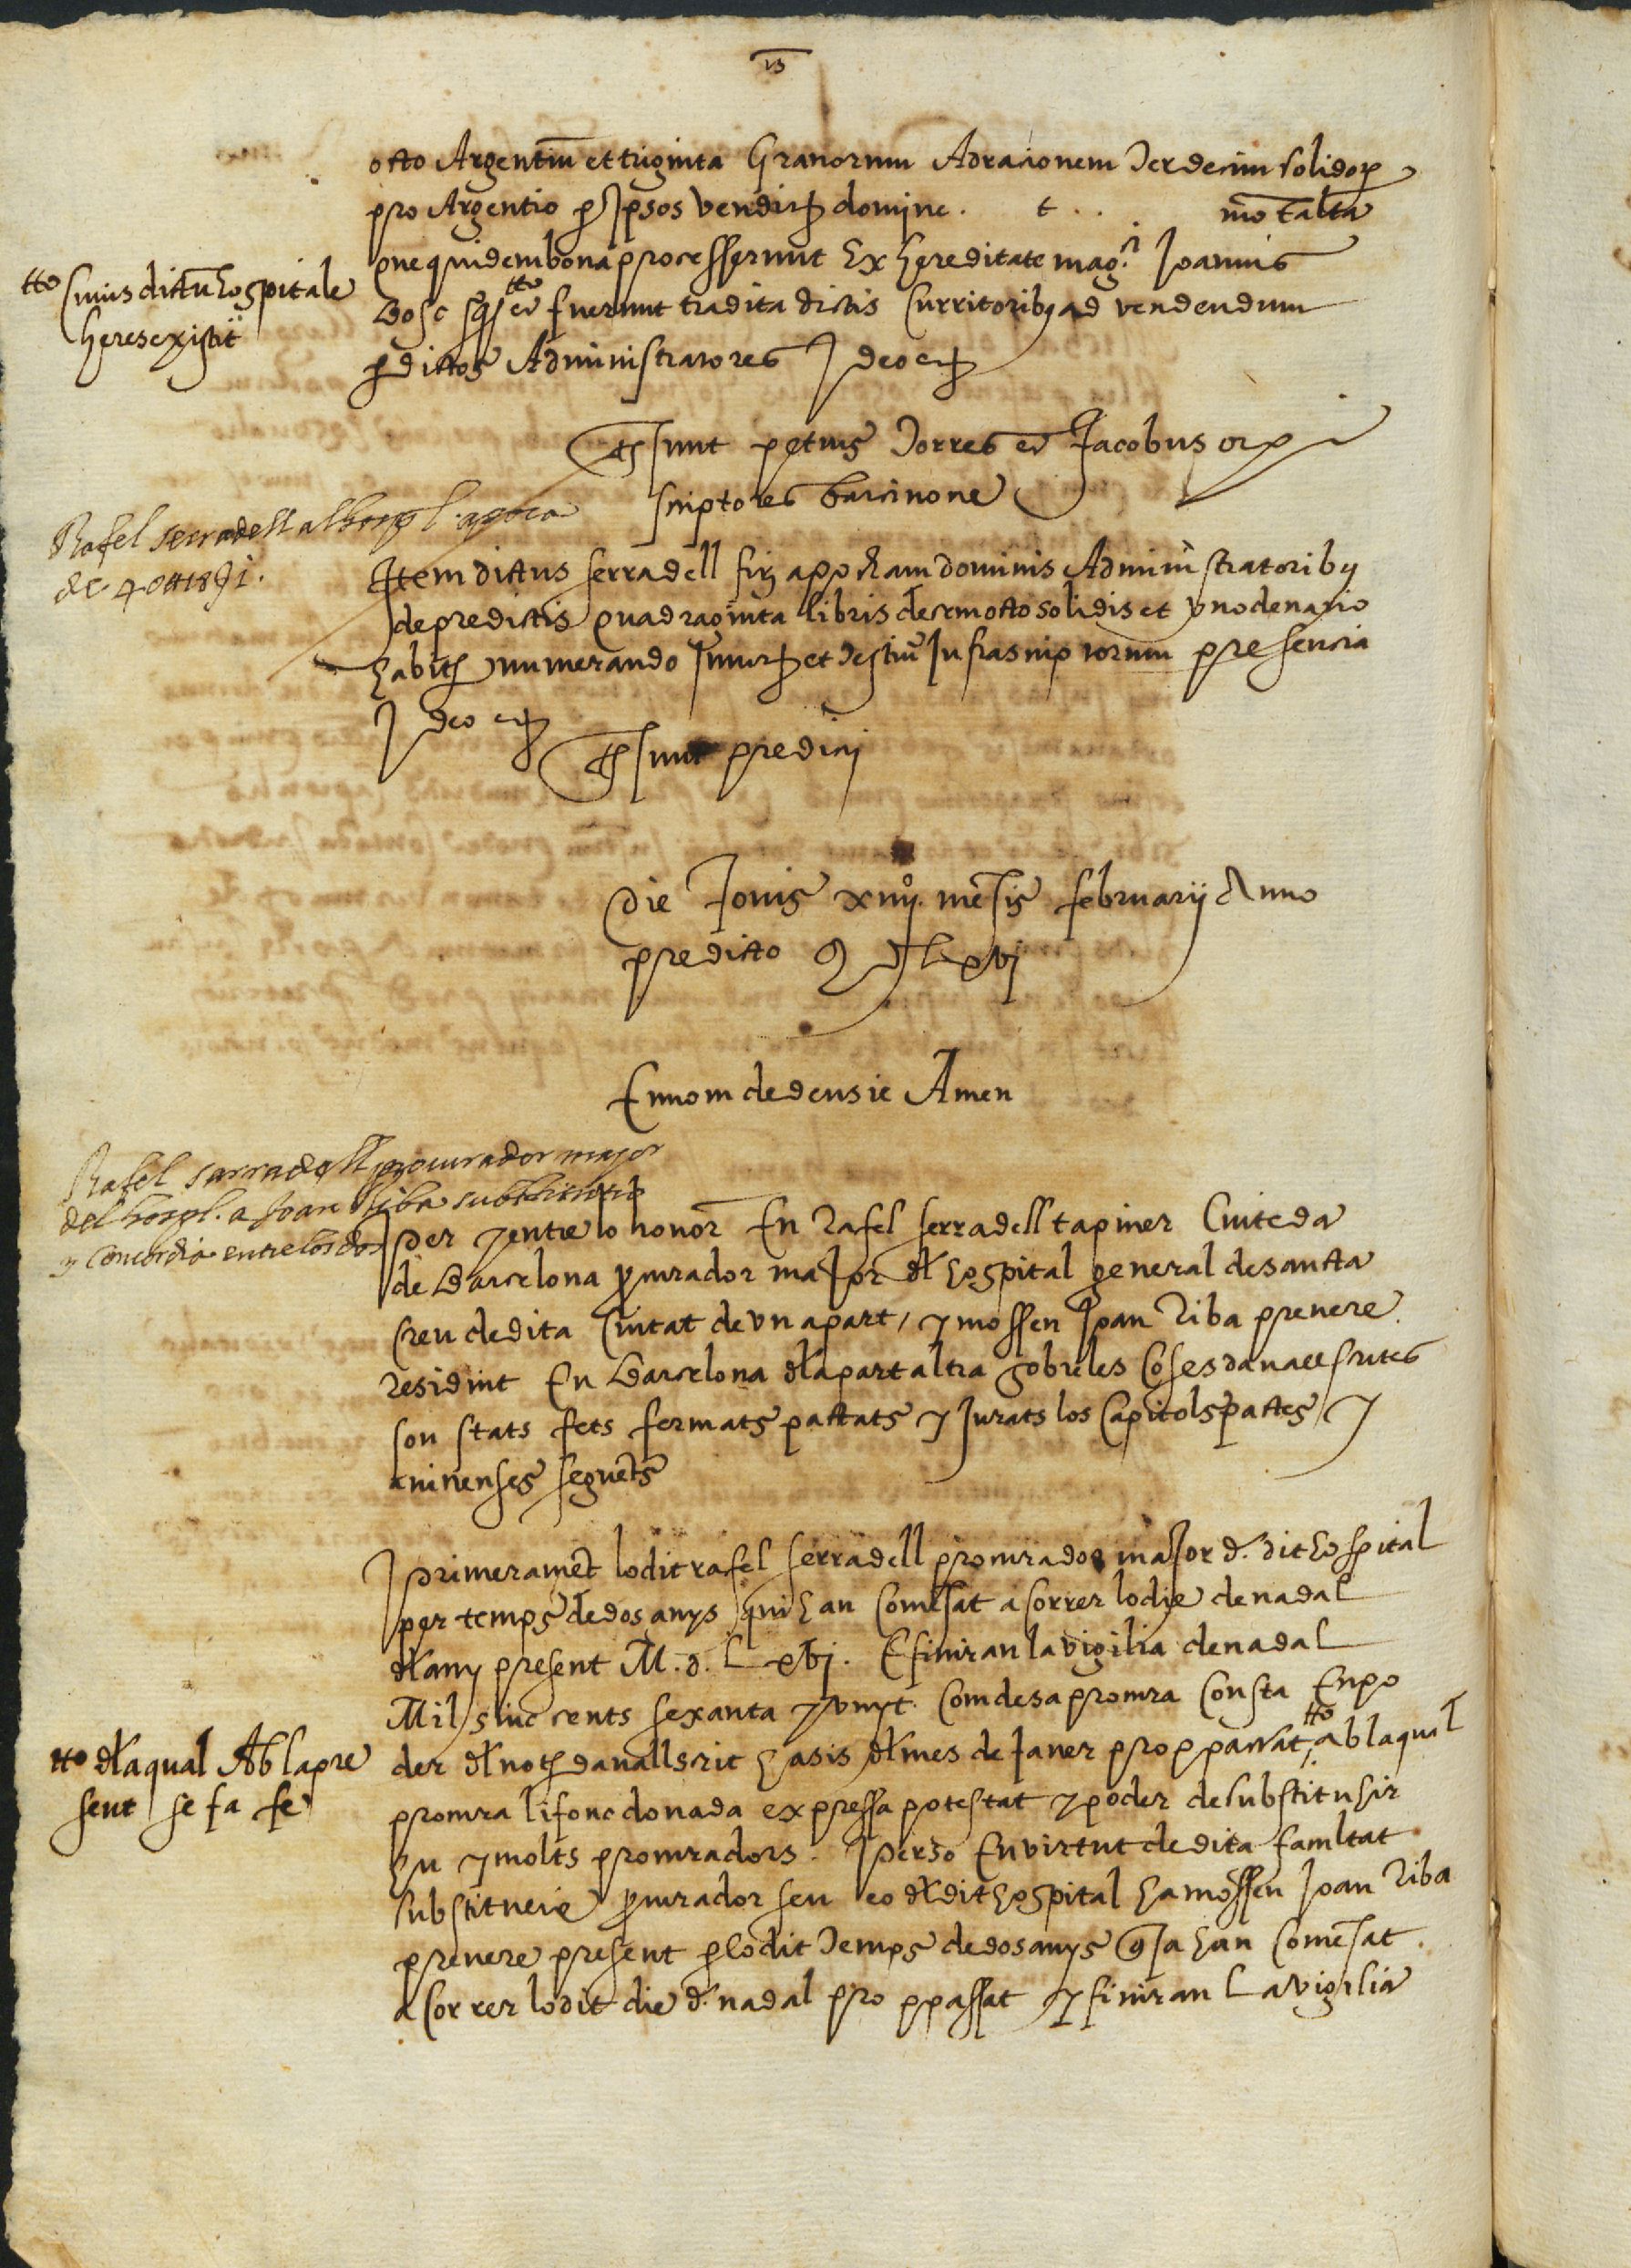 octo Argentiu et triginta Granorum Adracionem Terdecim solidor
pro Argentio p Ipsos vendit domine. t . . . mo talta
que quidem bona processerunt Ex hereditate mag.ci Joannis
tto Cuius dictu hospitale
heres existit
Bosc qs tto et fuerunt tradita dictis Curritoribus ad vendendum
p dictos Administratores Ideo etc
Ts sunt petrus Torres et Jacobus orp
scriptores barcinone
Rafel serradell al hospl. apoca
de 40 ll 18 s 1.
Item dictus serradell fir apocham dominis Administratoribus
de predictis quadraginta libris decemocto solidis et uno denario
habitis numerando In mor et testiu Infrascriptorum presencia
Ideo etc
Ts sunt predicti
Die Jovis xiiij. mesis februarij Anno
predicto M D Lxvj
En nom de deu sie Amen
Rafel sarradell procurador major
del hospl. a Joan Riba substitutio
y Concordia entre los dos
Per y entre lo honor En Rafel serradell tapiner Ciuteda
de Barcelona pcurador major dl hospital general de sancta
Creu de dita Ciutat de un a part, y mossen Joan Riba prevere
resident En Barcelona dla part altra sobre les Coses davall scrites
son stats fets fermats pactats y Jurats los Capitols pactes y
avinenses seguets
I primeramet lo dit rafel serradell procurador major d. dit hospital
per temps de dos anys qui han Comesat a Correr lo die de nadal
dl any present M. d. L xvj. E finiran la vigilia de nadal
Mil sinc cents sexanta y vuyt. Com de sa procura Consta En po
der dl not davall scrit ha sis dl mes de Janer prop passat, tto ab la qual
tto dla qual Ab la pre
sent se fa fe
procura li fonc donada expressa potestat y poder de substituhir
hu y molts procuradors. I perso En virtut de dita facultat
substitueix pcurador seu eo dl dit hospital ha mossen Joan Riba
prevere present p lo dit Temps de dos anys q Ja han Comesat
a Correr lo dit die d. nadal pro ppassat y finiran La vigilia